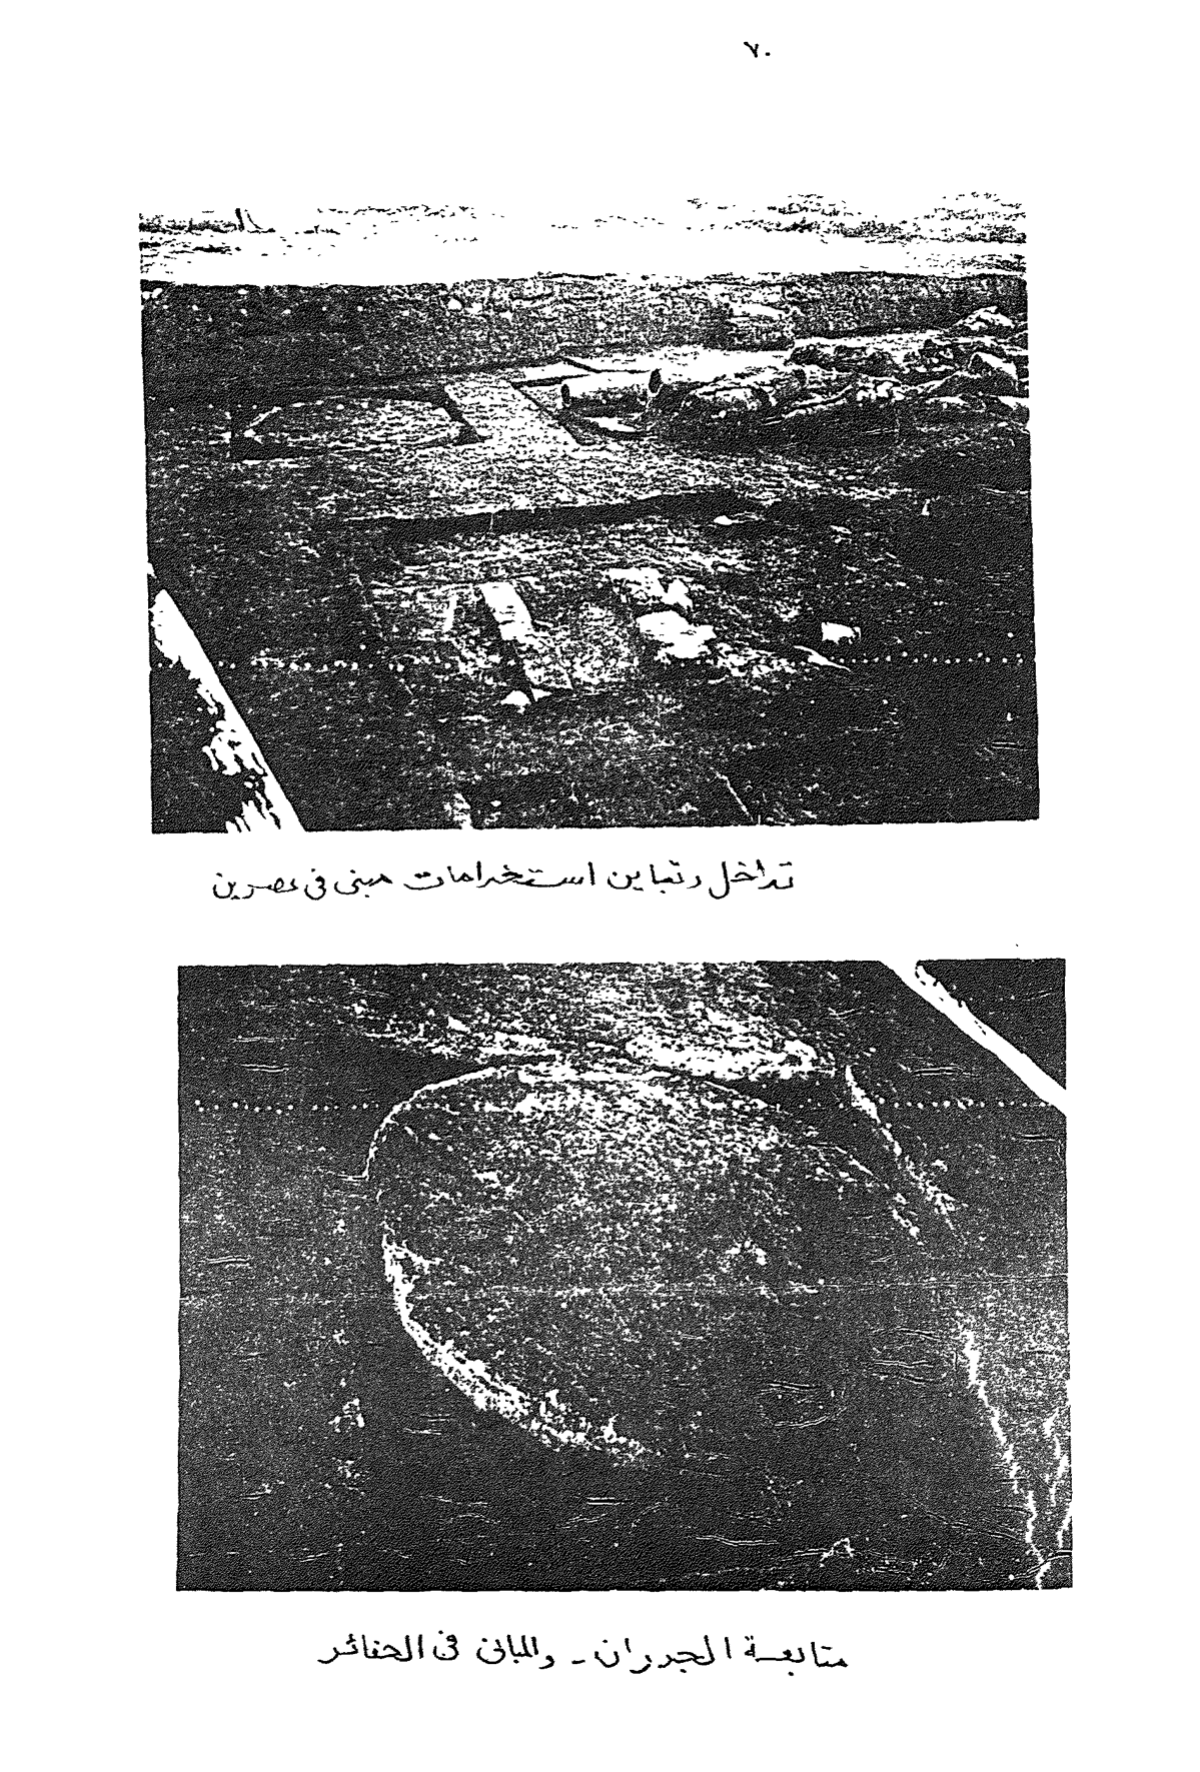 ٧٠
تداخل وتباين استخدامات مبنى فى عصرين
متابعة الجدران - والمبانى فى الحفائر